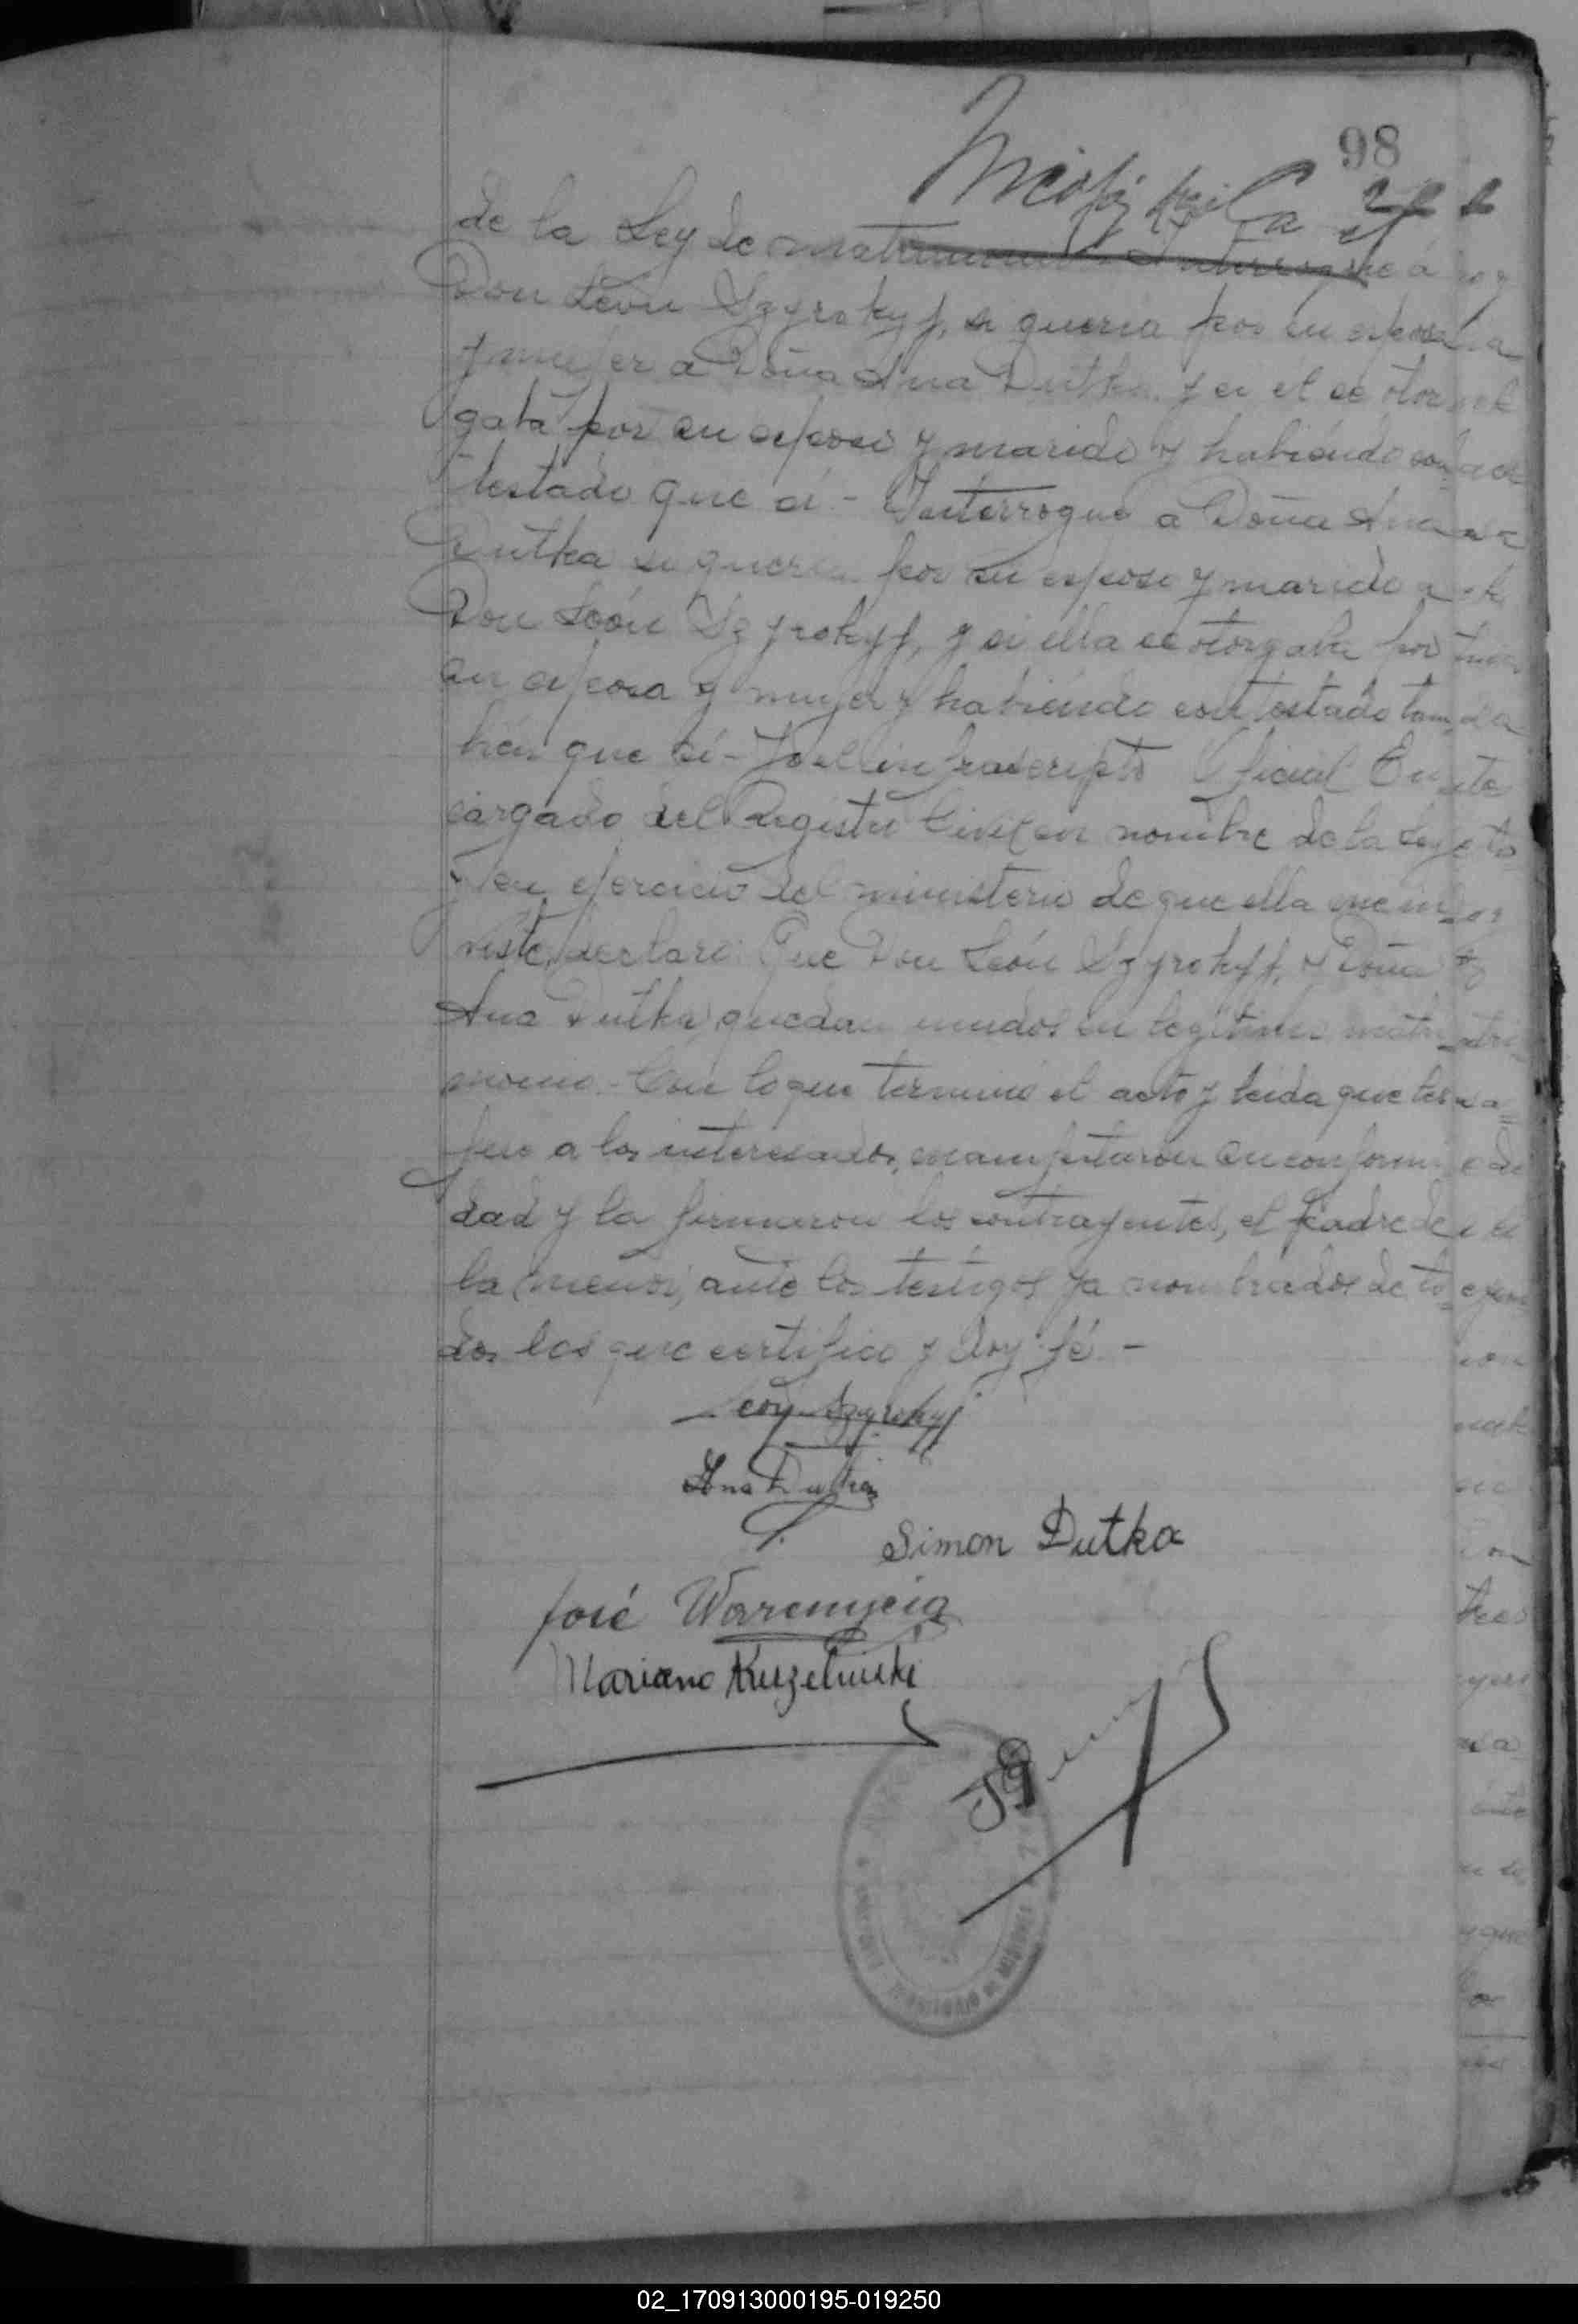 98
de la Ley de matrimonio - Interrogué á
Don León Szyrokyj, si quería por su esposa
y mujer a Doña Ana Dutka, y si él se otor
gaba por su esposo y marido y habiéndo con
testado que si - Interrogué a Doña Ana
Dutka si quería por su esposo y marido a
Don León Szyrokyj, y si ella se otorgaba por
su esposa y mujer y habiéndo contestado tam
bién que sí - Yo el infrascripto Oficial En
cargado del Registro Civil en nombre de la Ley
y en ejercicio del ministerio de que ella me in
viste, declaro: Que Don León Szyrokyj, y Doña
Ana Dutka, quedan unidos en legítimo matri
monio. - Con lo que terminó el acto y leida que les
fué a los interesados, manifestaron su conformi
dad y la firmaron los contrayentes, el padre de
la menor, ante los testigos ya nombrados de to
dos los que certifico y doy fé -
León Szyrokyj
Ana Dutka
Simon Dutka
José Waremycia
Mariano Kuzeluiski
TERRITORIO DE MISIONES
02_170913000195-019250